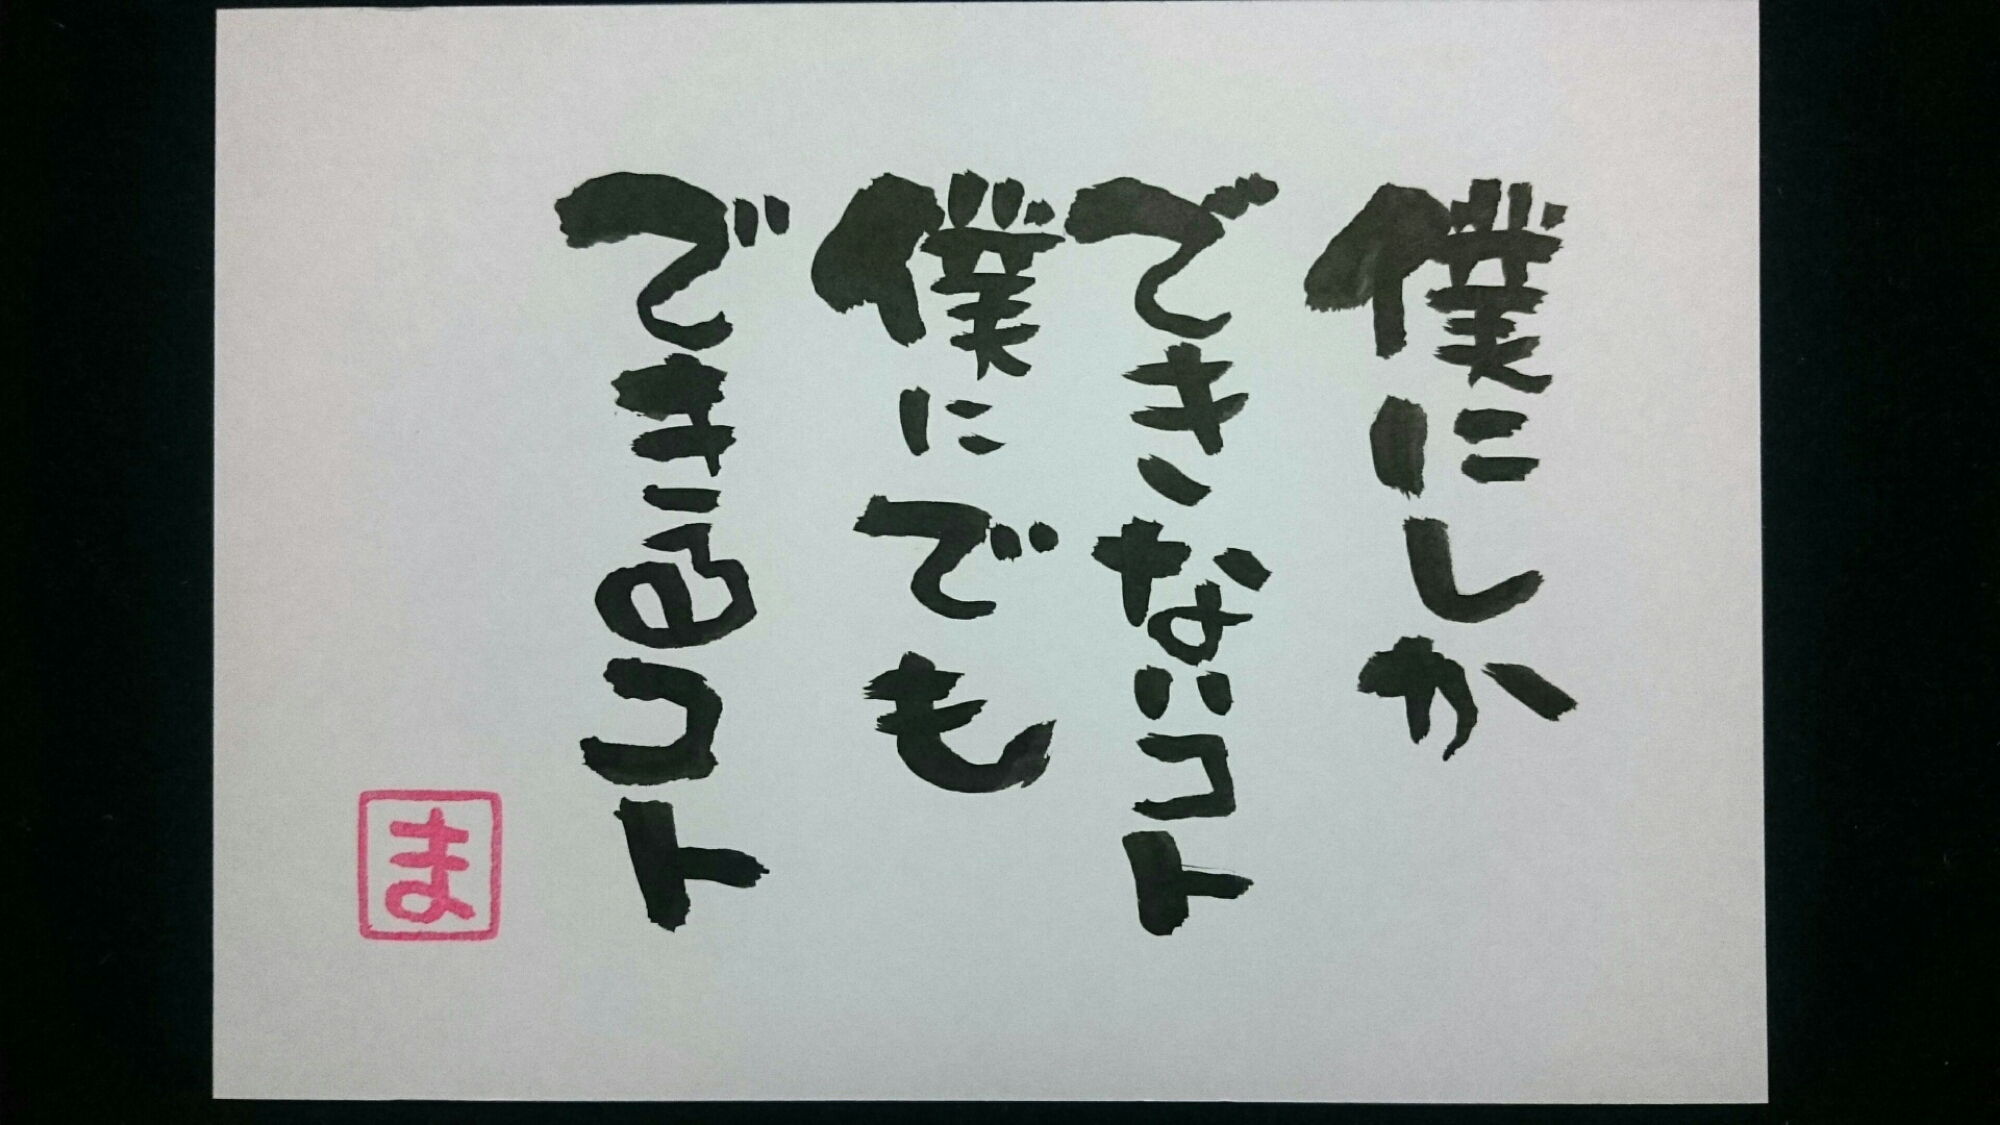 僕にしか
できないコト
僕にでも
できるコト
ま